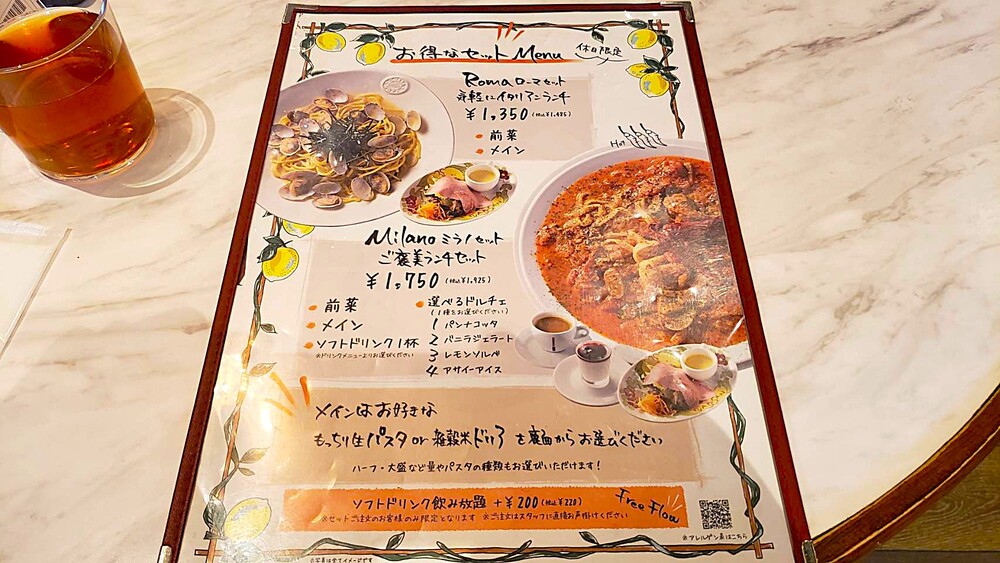 お得なセットMenu
休日限定
Roma ローマセット
気軽にイタリアンランチ
¥1,350(税込¥1,485)
前菜
メイン
Hot
Milano ミラノセット
ご褒美ランチセット
¥1,750(税込¥1,925)
前菜
メイン
ソフトドリンク1杯
※ドリンクメニューよりお選びください
選べるドルチェ
(1種をお選びください)
1 パンナコッタ
2 バニラジェラート
3 レモンソルベ
4 アサイーアイス
メインはお好きな
もっちり生パスタ or 雑穀米ドリア を裏面からお選びください
ハーフ・大盛など量やパスタの種類もお選びいただけます!
ソフトドリンク飲み放題 +¥200(税込¥220)
Free Flow
※セットご注文のお客様のみ限定となります ※ご注文はスタッフに直接お声掛けください
※アレルゲン表はこちら
※写真は全てイメージです